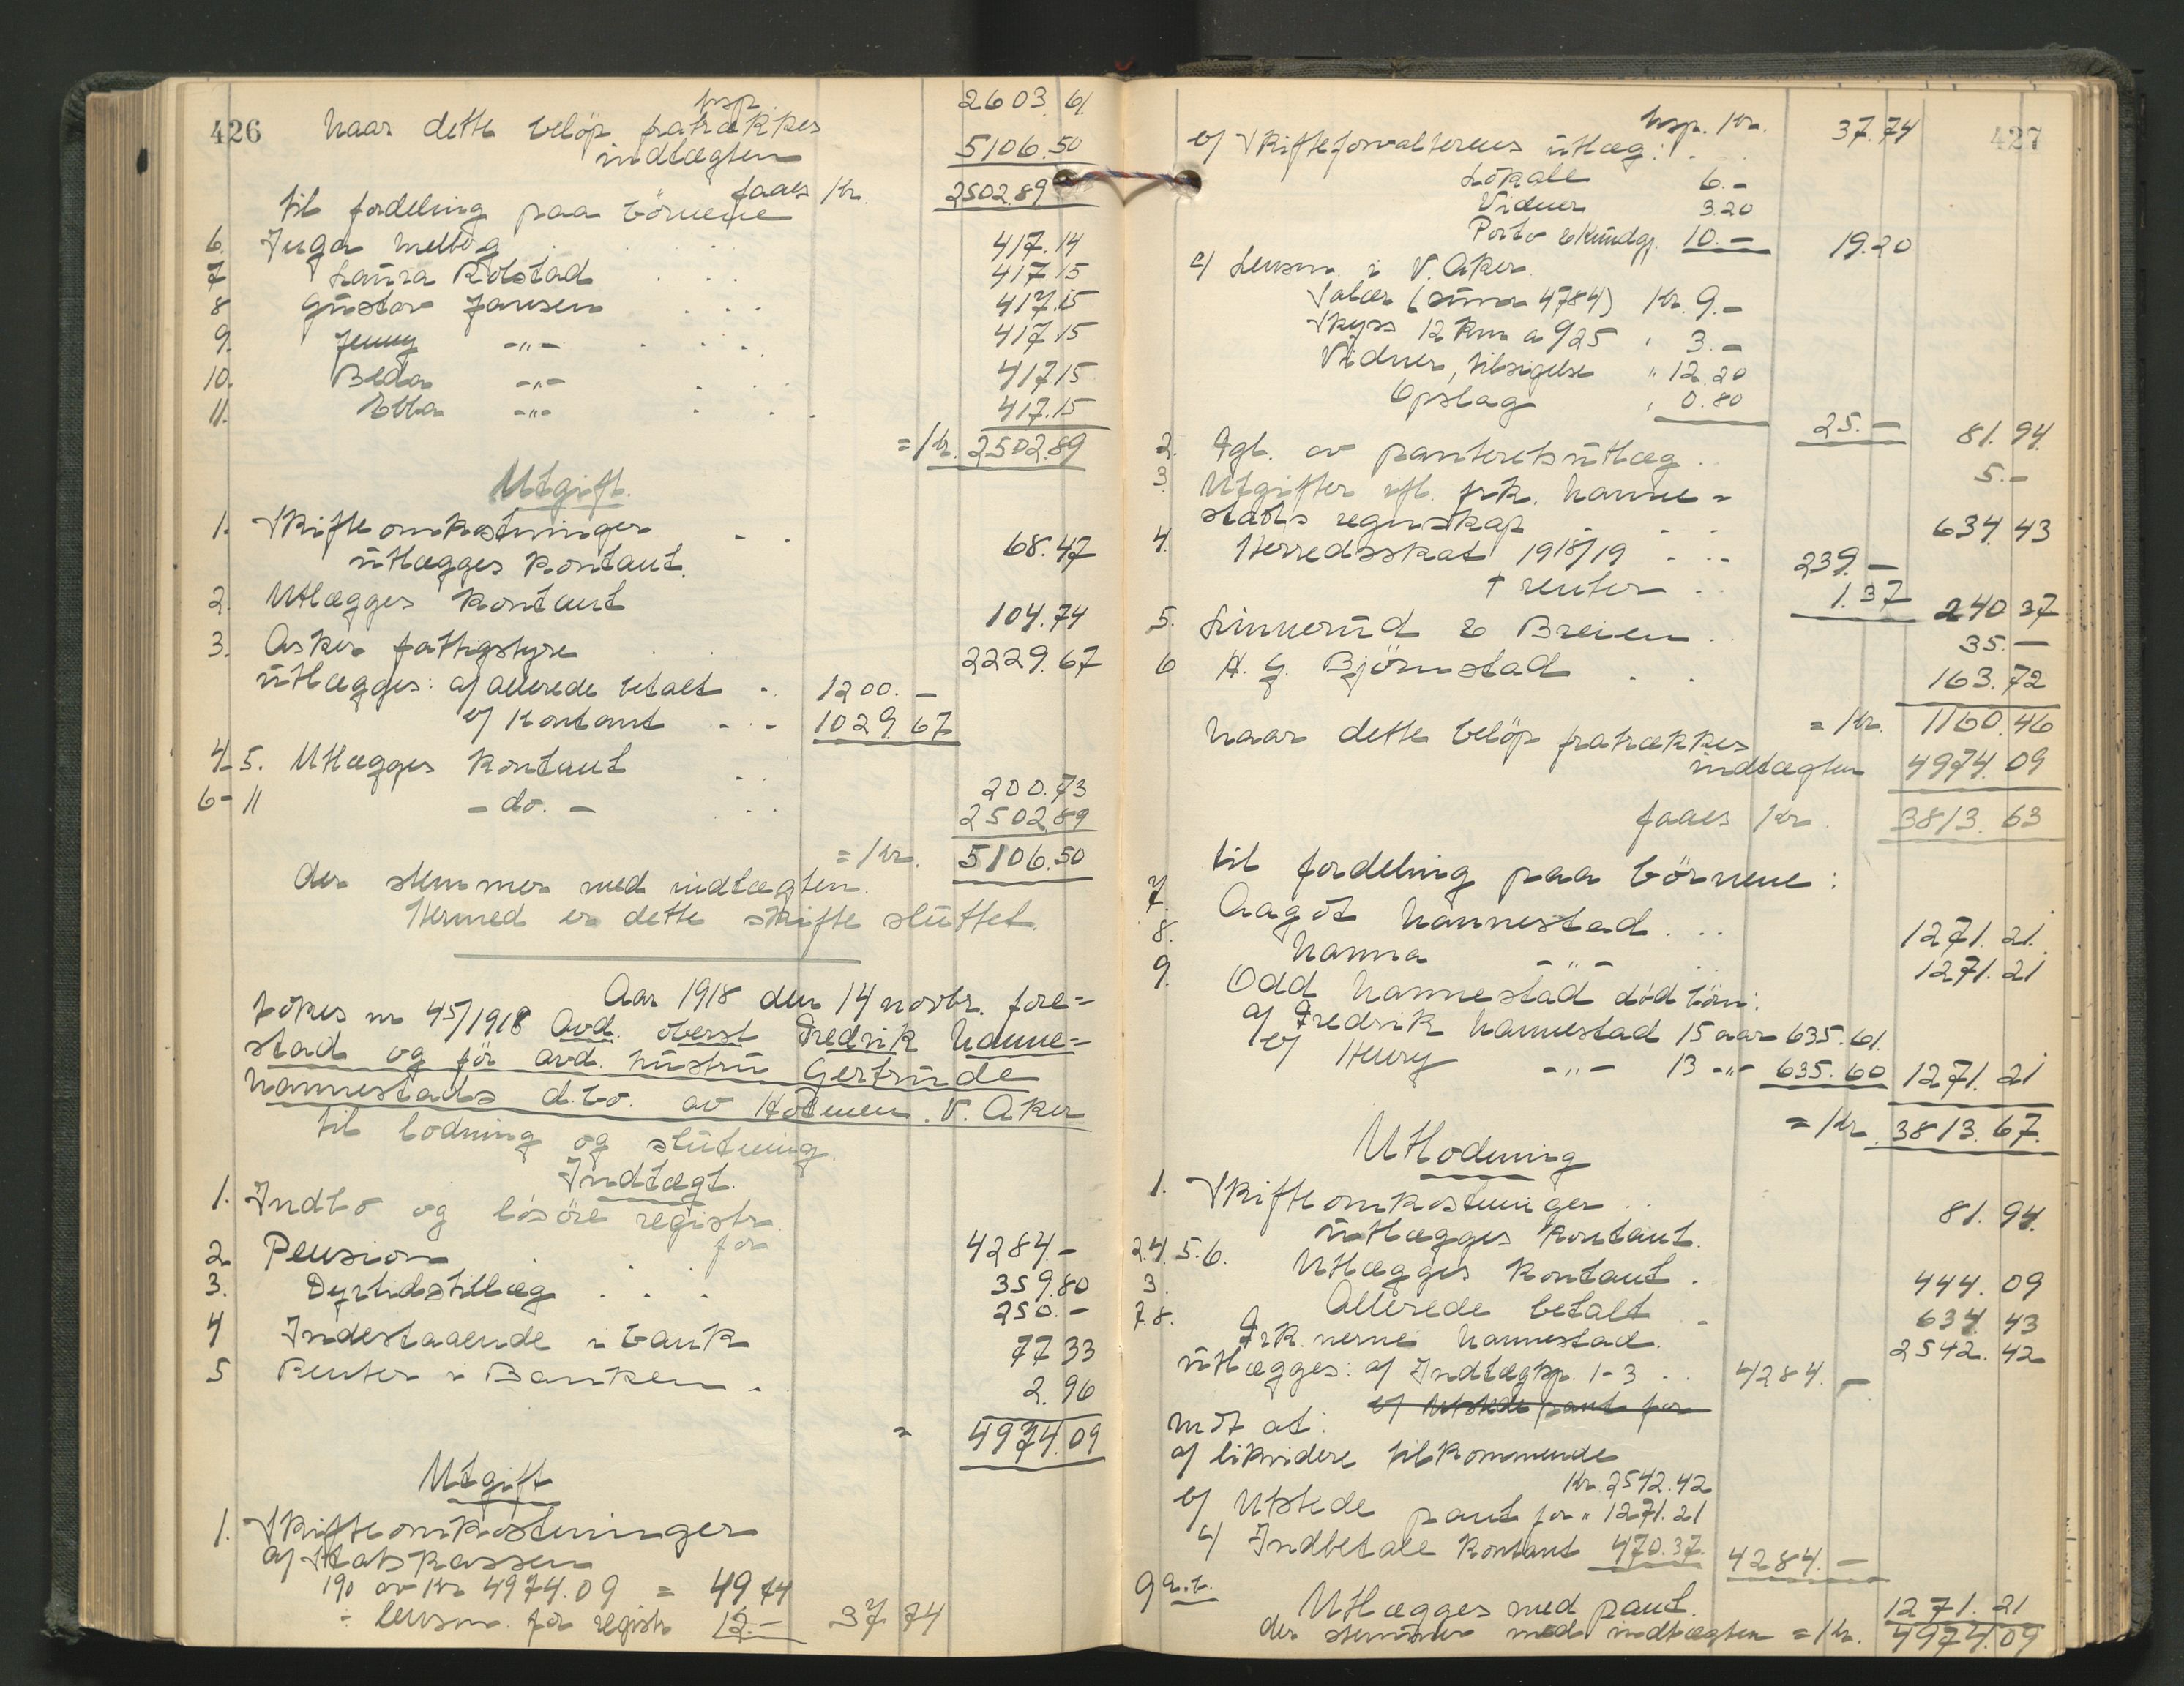 426
trsp. 2603.61
Naar dette beløp fratrækkes
indtægten 5106.50
faaes Kr. 2502.89
til fordeling paa børnene
6. Inga Melbg . . . 417.14
7 Laura Rolstad . . 417.15
8 Gustav Jansen . . . 417.15
9. Jenny -"- . . . 417.15
10. Beda -"- . . 417.15
11. Ebba -"- . . . 417.15
= Kr. 2502.89
Utgift.
1. Skifteomkostninger . . 68.47
utlægges kontant.
2. Utlægges kontant 104.74
3. Asker fattigstyre . . 2229.67
utlægges: a/ allerede betalt . 1200.-
b/ kontant . . 1029.67
4-5. Utlægges kontant . . 200.73
6-11 - do. - . . 2502.89
= Kr. 5106.50
der stemmer med indtægten.
Hermed er dette skifte sluttet.
Aar 1918 den 14 novbr. fore=
tokes nr 45/1918 Avd. oberst Fredrik Hanne=
stad og før avd. hustru Gertrude
Hannestads d.bo. av Holmen. V. Aker
til lodning og slutning.
Indtægt.
1. Indbo og løsøre registr.
for 4284.-
2. Pension . . . 359.80
3. Dyrtidstillæg . . . 250.-
4 Indestaaende i bank 77 33
5 Renter i Banken . 2.96
= 4974.09
Utgift
1. Skifteomkostninger
a/ Statskassen
1% av Kr. 4974.09 = 49 74
÷ lensm. for registr. 12.- 37 74
427
trsp. Kr. 37.74
b/ Skifteforvalterens utlæg: . .
Lokale 6.-
Vidner 3.20
Porto & kundgj. 10.- 19.20
c/ Lensm. i V. Aker.
Salær (summa 4784) Kr. 9.-
Skyss 12 km a 0/25 " 3.-
Vidner, tilsigelse " 12.20
Opslag " 0.80
25.- 81.94.
2. Tgl. av panteretsutlæg . . 5.-
3. Utgifter ifl. frk. Hanne=
stads regnskap . . . 634.43
4. Herredsskat 1918/19 . . . 239.-
+ renter . . 1.37 240 37
5. Linnerud & Breien . 35.-
6 H. G. Bjørnstad . . 163.72
= Kr. 1160.46
Naar dette beløp fratrækkes
indtægten 4974.09
faaes Kr. 3813.63
til fordeling paa børnene:
7. Aagot Hannestad . . . 1271.21.
8. Hanna -"- . . 1271.21
9. Odd Hannestad død børn:
a/ Fredrik Hannestad 15 aar 635.61.
b/ Henry -"- 13 -"- 635.60 1271.21
= Kr. 3813.67.
Utlodning
1. Skifteomkostninger . . 81.94.
utlægges kontant.
2.4.5.6. Utlægges kontant . 444.09
3. Allerede betalt . 634.43
7.8. Frk.nerne Hannestad. 2542.42
utlægges: a/ Indtægtsp. 1-3 . . 4284.-
b/ Utstede pant for
mot at:
a/ likvidere tilkommende
Kr. 2542.42
b/ Utstede pant for " 1271.21
c/ Indbetale kontant 470.37. 4284.-
9 a.b. Utlægges med pant. 1271.21
der stemmer med indtægten = Kr. 4974.09